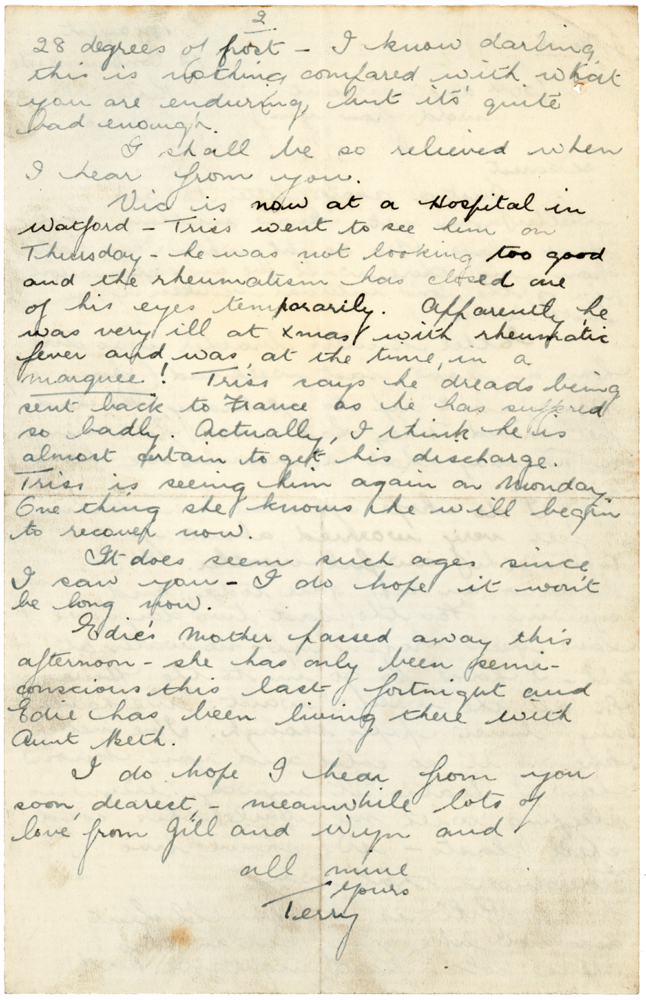 2
28 degrees of frost - I know darling,
this is nothing compared with what
you are enduring, but its' quite
bad enough.
I shall be so relieved when
I hear from you.
Vic is now at a Hospital in
Watford - Triss went to see him on
Thursday - he was not looking too good
and the rheumatism has closed one
of his eyes temporarily. Apparently, he
was very ill at Xmas with rheumatic
fever and was, at the time, in a
marquee! Triss says he dreads being
sent back to France as he has suffered
so badly. Actually, I think he is
almost certain to get his discharge.
Triss is seeing him again on Monday.
One thing she knows he will begin
to recover now.
It does seem such ages since
I saw you - I do hope it won't
be long now.
Edie's Mother passed away this
afternoon - she has only been semi-
conscious this last fortnight and
Edie has been living there with
Aunt Beth.
I do hope I hear from you
soon, dearest, - meanwhile lots of
love from Jill and Wyn and
all mine
Yours
Terry